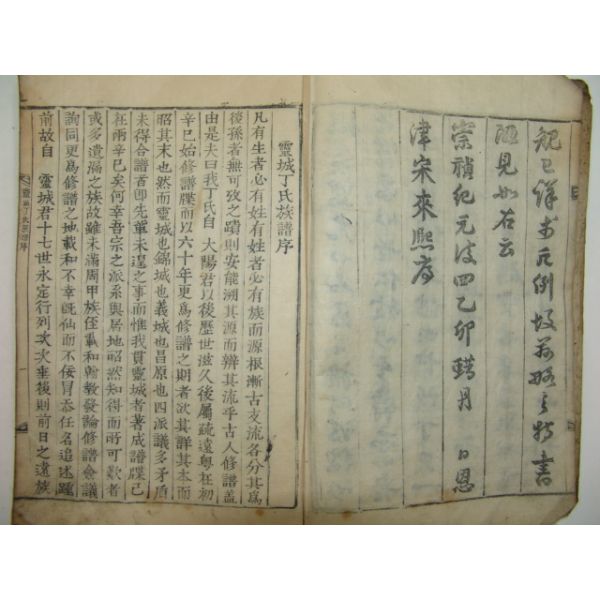 親已傳於凡例故畧
陋見如右云
崇禎紀元後四乙卯
月 日恩
津宋來熙序
靈城丁氏族譜序
凡有生者必有姓有姓者必有族而源根漸古支流各分其爲
後孫者無可攷之蹟則安能溯其源而辨其流乎古人修譜盖
由是夫曰我丁氏自 大陽君以後歷世滋久後屬疏遠粤在初
辛巳始修譜牒而以六十年更爲修譜之期者欲其詳其本而
昭其末也然而靈城也錦城也義城也昌原也四派議多矛盾
未得合譜者卽先輩未遑之事而惟我貫靈城者著成譜牒已
在兩辛巳矣何幸吾宗之派系與居地昭然知得而所可歎者
或多遺漏之族故雖未滿周甲族侄載和翰敎發論修譜會議
詢同更爲修譜之地載和不幸旣仙而不佞冒忝任名追述踵
前故自 靈城君十七世永定行列次次垂後則前日之遺族